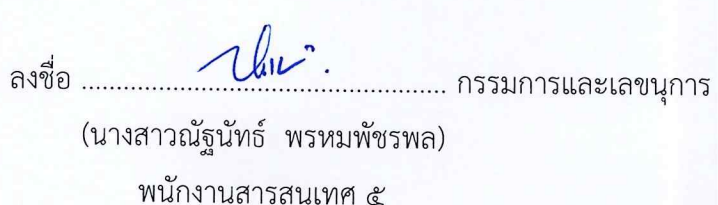 ลงชื่อ ................................................ กรรมการและเลขนุการ
(นางสาวณัฐนัทธ์ พรหมพัชรพล)
พนักงานสารสนเทศ ๕